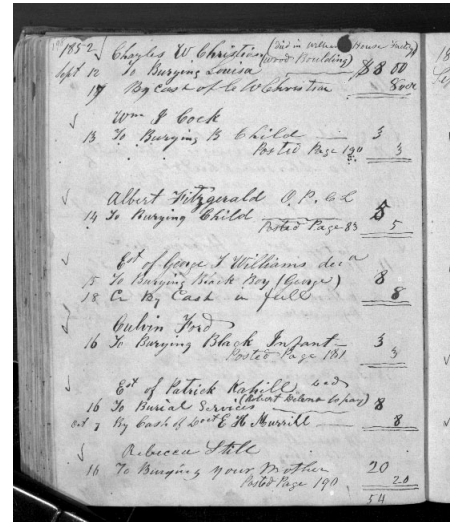 1852
Charles W Christian (Died in William House Factory
(Wood Boulding)
Sept 12 To Burying Louisa $8 00
17 By cash of C W Christian 8 00
Wm J Cock
13 To Burying B Child 3
Posted Page 190 3
Albert Fitzgerald O. P. C L
14 To Burying Child 5
Posted Page 83 5
Est of George T Williams decd
15 To Burying Black Boy (George) 8
18 Cr By Cash in full 8
Calvin Ford
16 To Burying Black Infant 3
Posted Page 181 3
Est of Patrick Kahill decd
(Robert Dilena to pay)
16 To Burial Services 8
Oct 7 By Cash of Doct E H Murrill 8
Rebecca Still
16 To Burying your Mother 20
Posted Page 190 20
54